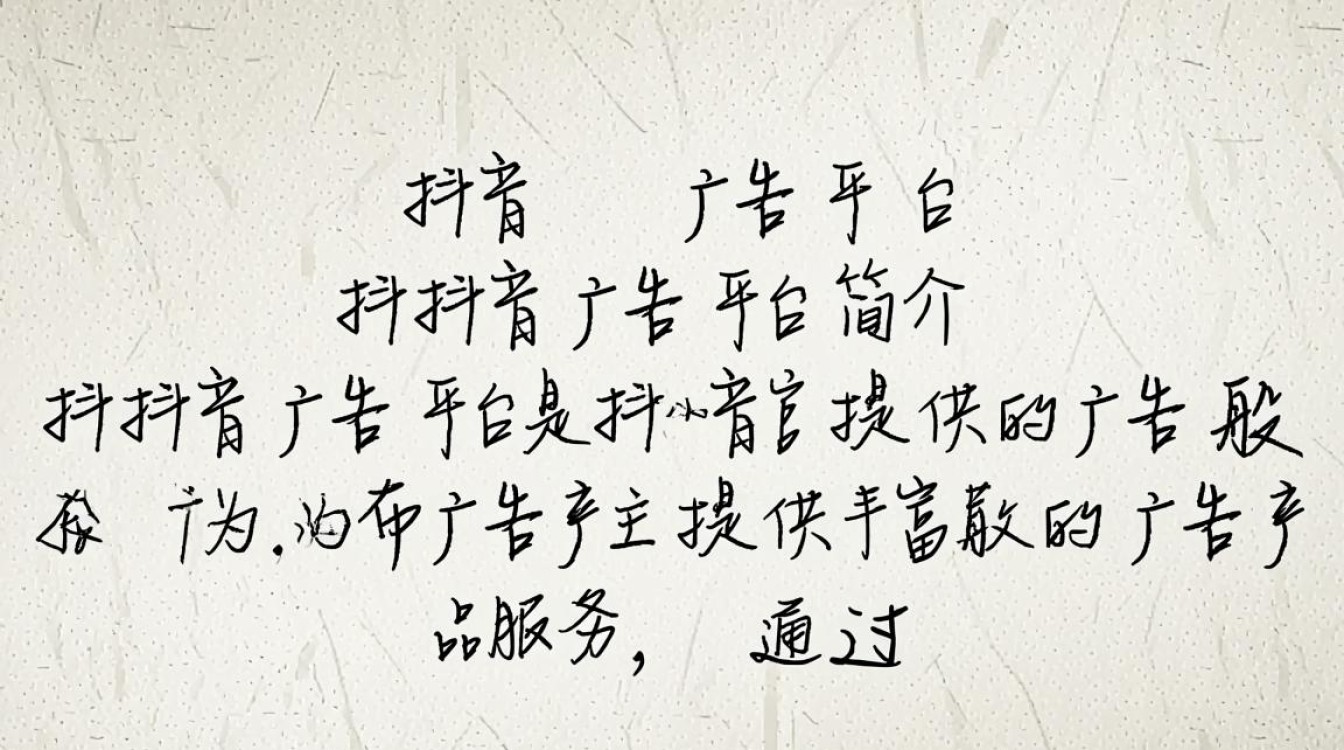 抖音 广告平台
抖抖音广告平台简介
抖抖音广告平台是抖音官提供的广告般
为.沟布广告产主提供丰富散的广告产
品服务, 通过